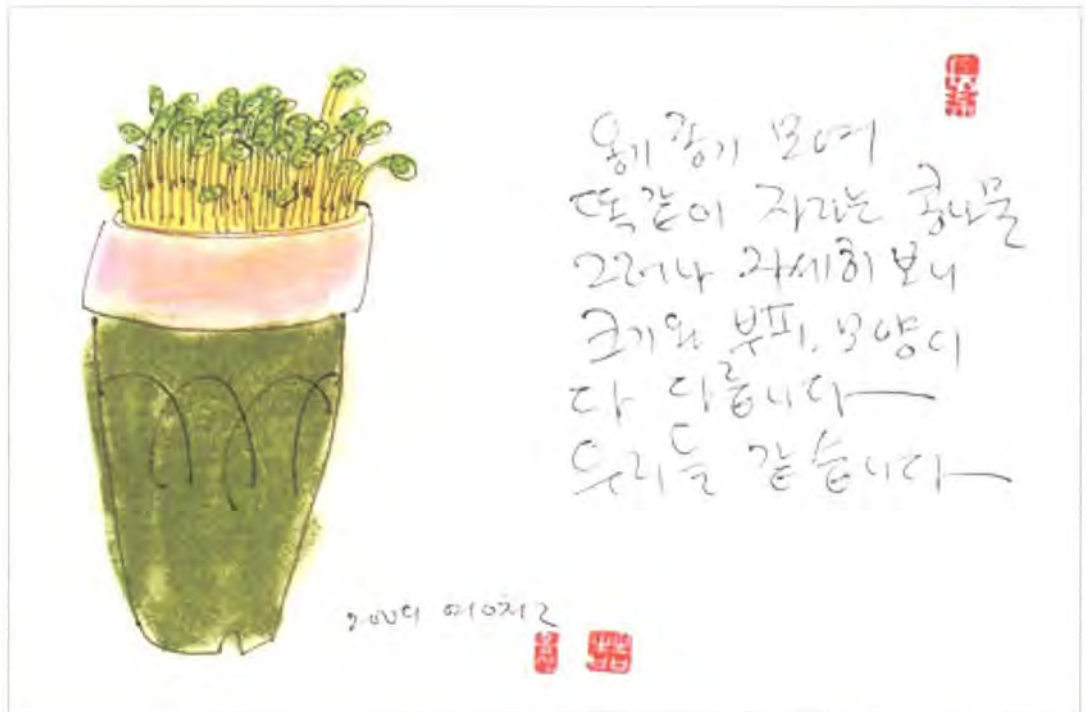 옹기 종기 모여
똑같이 자라는 콩나물
그러나 자세히 보니
크기와 부피, 모양이
다 다릅니다
우리들 같습니다